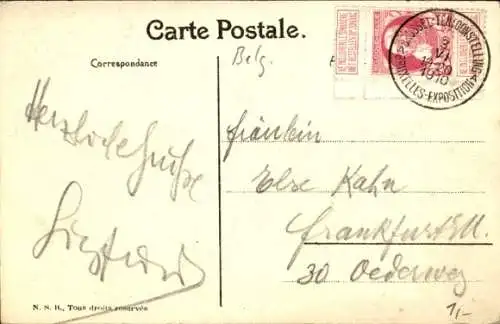 Carte Postale.
Correspondance
Belg.
BRUSSEL-TENTOONSTELLING
3
VI
1910
BRUXELLES-EXPOSITION
Herzliche Grüsse
Siegfried
Fräulein
Else Kahn
Frankfurt M.
30 Oederweg
N. S. B., Tous droits reservés
1,-